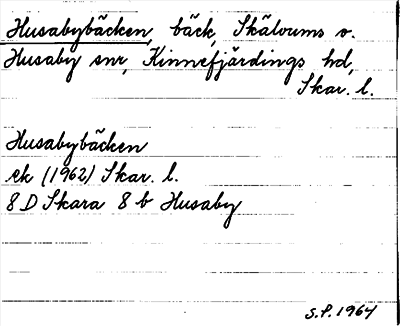 Husabybäcken, bäck, Skälvums o.
Husaby snr, Kinnefjärdings hd,
Skar. l.
Husabybäcken
ek (1962) Skar. l.
8 D Skara 8 b Husaby
S.P. 1964